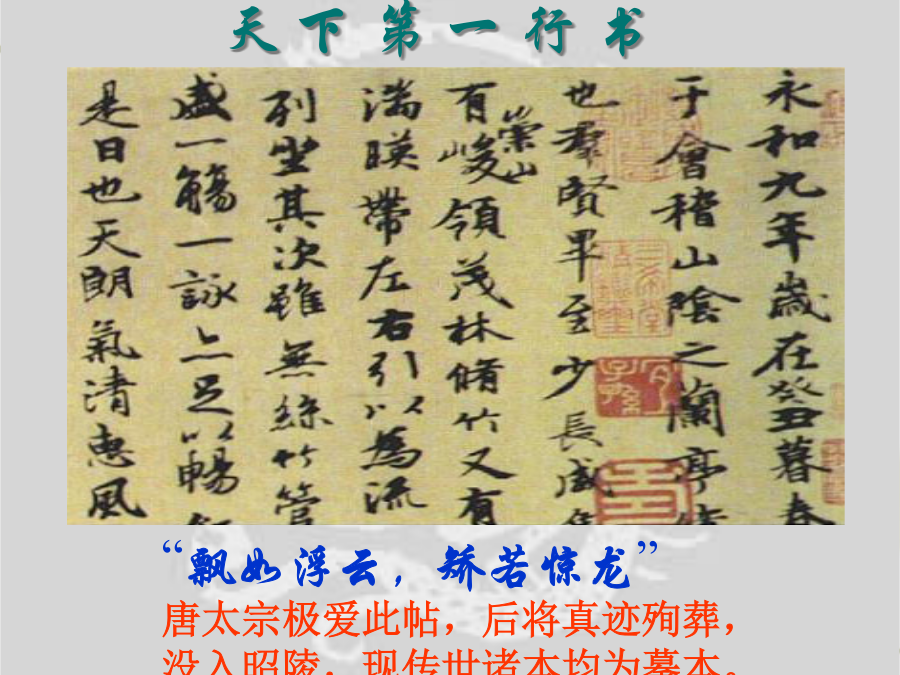 天下第一行书
永和九年歲在癸丑暮春
于會稽山陰之蘭亭脩
也羣賢畢至少長咸集
有崇山峻領茂林脩竹又有
湍暎帶左右引以為流
列坐其次雖無絲竹管
盛一觴一詠亦足以暢
是日也天朗氣清惠風
“飘如浮云，矫若惊龙”
唐太宗极爱此帖，后将真迹殉葬，
没入昭陵，现传世诸本均为摹本。